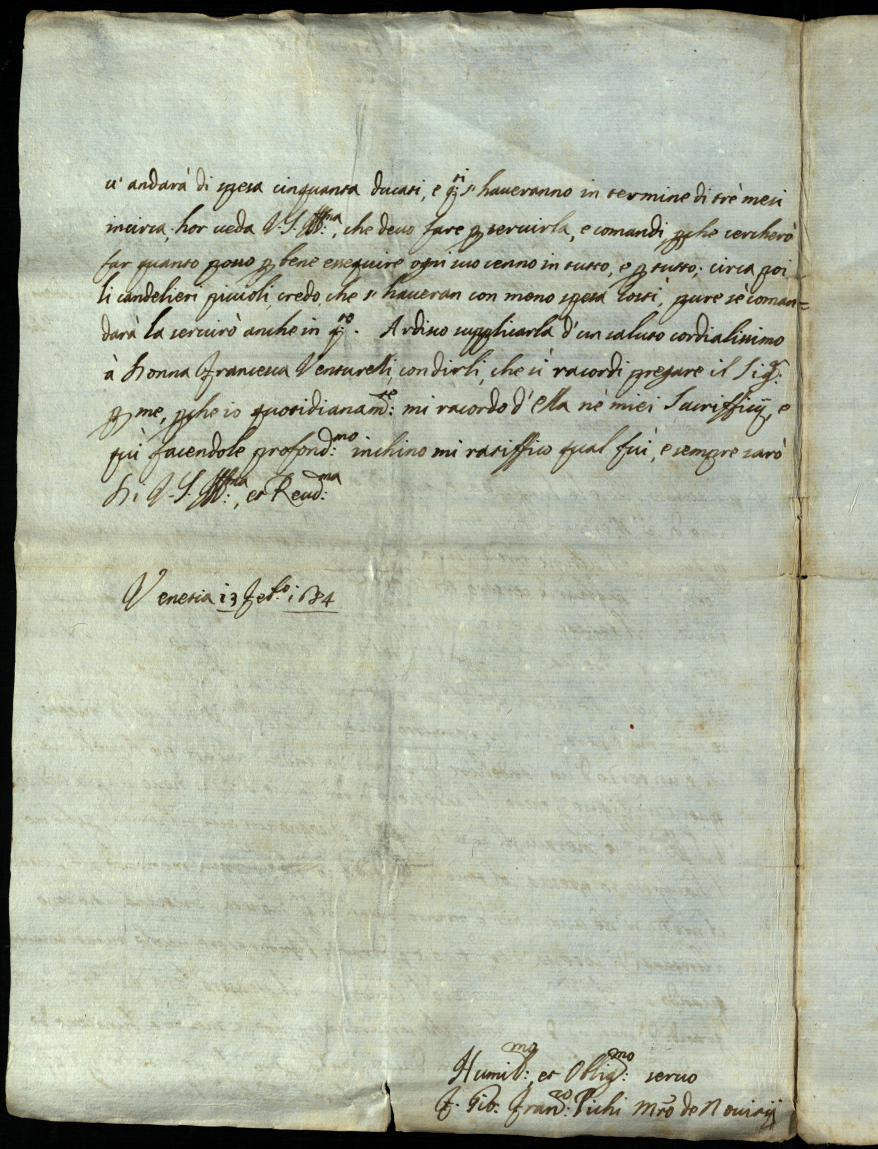 u' andarà di spesa cinquanta ducati, e q.sti s' haueranno in termine di trè mesi
incirca, hor ueda V.S. Ill.ma, che deuo fare p seruirla, e comandi pche cercherò
far quanto posso p bene esseguire ogni suo cenno in tutto, e p tutto; circa poi
li candelieri piccioli, credo, che s' haueran con meno spesa costì, pure sè coman=
darà la seruirò anche in q.to. Ardisco supplicarla d'un saluto cordialissimo
à Donna Francesca Venturelli, con dirli, che si racordi pregare il Sig.r
p me, pche io quotidianam.te: mi racordo d' Ella nè miei Sacrifficij, e
quì facendole profond.mo inchino mi ratiffico qual fui, e sempre sarò
Di V.S. Ill.ma, et Reud.ma
Venetia 13 Feb.o: 1684
Humil.mo: et Oblig.mo: seruo
F. Gio: Fran.co: Pichi Mro de Nouitij